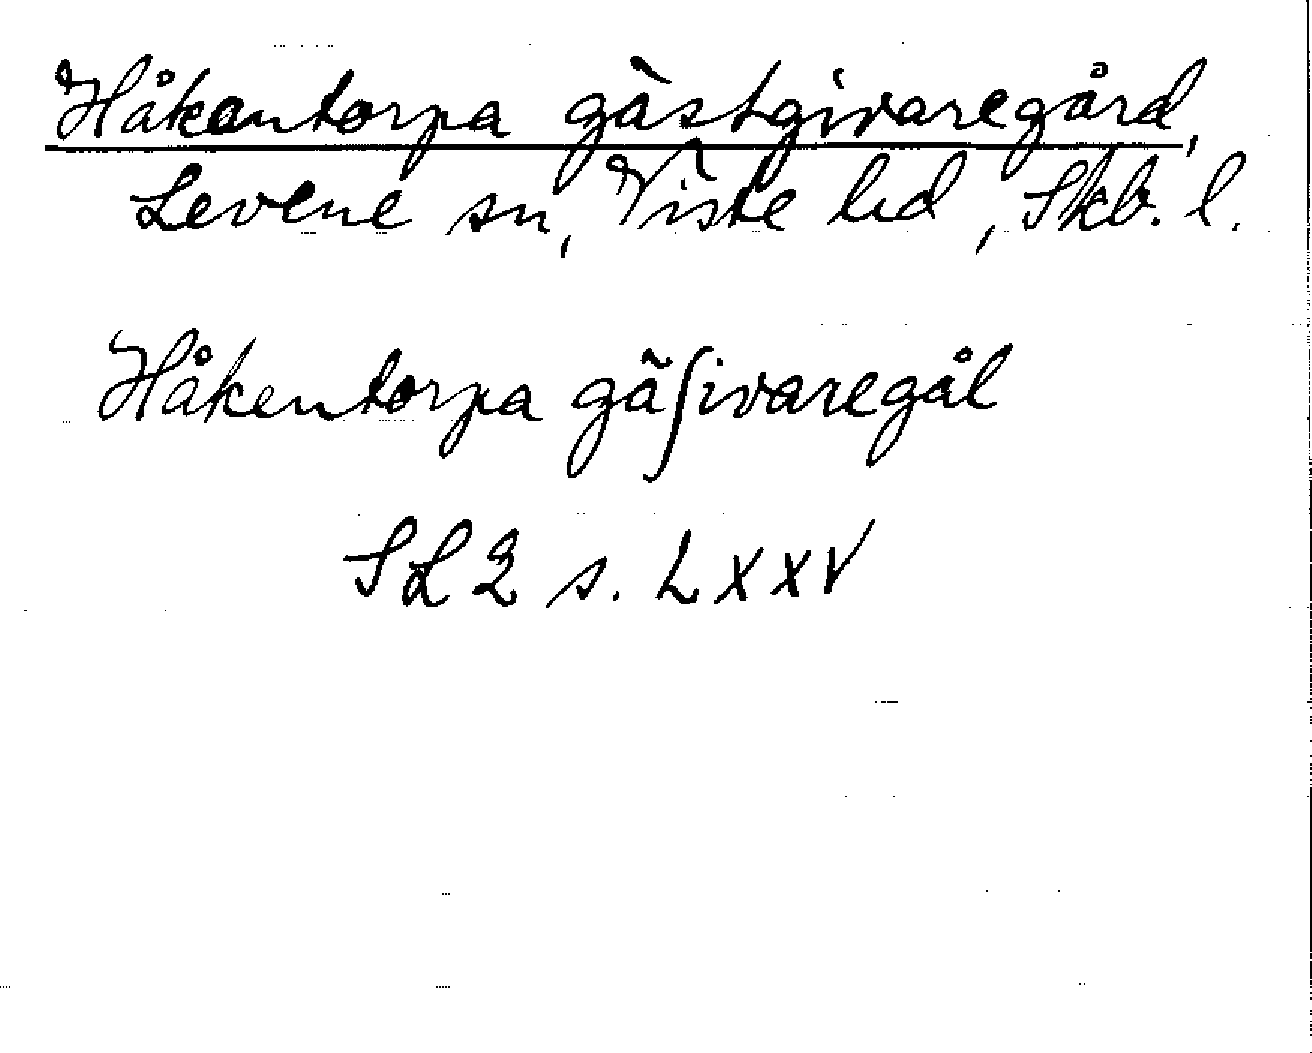 Håkentorpa gästgivaregård,
Levene sn, Viste hd, Skb. l.
Håkentorpa gäʃivaregål
SL 2 s. LXXV